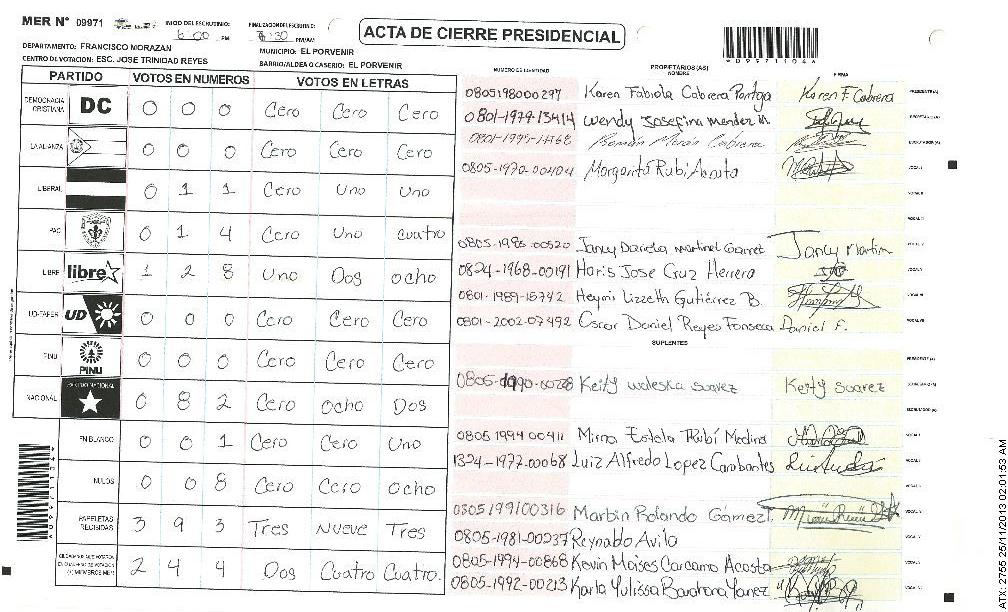 MER N° 09971
INICIO DEL ESCRUTINIO: 6 00 PM
FINALIZACION DEL ESCRUTINIO: 30 PM/AM
ACTA DE CIERRE PRESIDENCIAL
*09971104*
DEPARTAMENTO: FRANCISCO MORAZAN
MUNICIPIO: EL PORVENIR
CENTRO DE VOTACION: ESC. JOSE TRINIDAD REYES
BARRIO/ALDEA O CASERIO: EL PORVENIR
PARTIDO VOTOS EN NUMEROS VOTOS EN LETRAS
DEMOCRACIA CRISTIANA DC 0 0 0 Cero Cero Cero
LA ALIANZA 0 0 0 Cero Cero Cero
LIBERAL 0 1 1 Cero Uno Uno
PAC 0 1 4 Cero Uno cuatro
LIBRE libre 1 2 8 Uno Dos ocho
UD-FAPER UD 0 0 0 Cero Cero Cero
PINU PINU 0 0 0 Cero Cero Cero
NACIONAL 0 8 2 Cero Ocho Dos
EN BLANCO 0 0 1 Cero Cero Uno
NULOS 0 0 8 Cero Cero ocho
PAPELETAS RECIBIDAS 3 9 3 Tres Nueve Tres
2 4 4 Dos Cuatro Cuatro.
NUMERO DE IDENTIDAD PROPIETARIOS (AS) NOMBRE FIRMA
0805198000297 Karen Fabiola Cabrera Pantoja Karen F. Cabrera PRESIDENTE (A)
0801-1979-13414 Wendy Josefina Mendez M. SECRETARIO (A)
ESCRUTADOR (A)
0805-1970-00404 Margarita Rubi Acosta VOCAL I
VOCAL II
0805-1995-00520 Jancy Daniela Martinez Jancy Martin
0824-1968-00191 Haris Jose Cruz Herrera
0801-1989-15742 Heymi Lizzeth Gutiérrez B.
0801-2002-07492 Oscar Daniel Reyes Fonseca Daniel F.
SUPLENTES
PRESIDENTE (A)
Keity waleska suarez Keity suarez SECRETARIO (A)
ESCRUTADOR (A)
0805 1994 00411 Mirna Estela Rubí Medina
1324-1977-00068 Luiz Alfredo Lopez Carabantes
0805199100316 Marbin Rolando Gómez
0805-1981-00237 Reynaldo Avila
0805-1994-00868 Kevin Moises Carcamo Acosta
0805-1992-00213 Karla Yulissa Barahona Yanez
*09971104*
ATX 2755 25/11/2013 02:01:53 AM